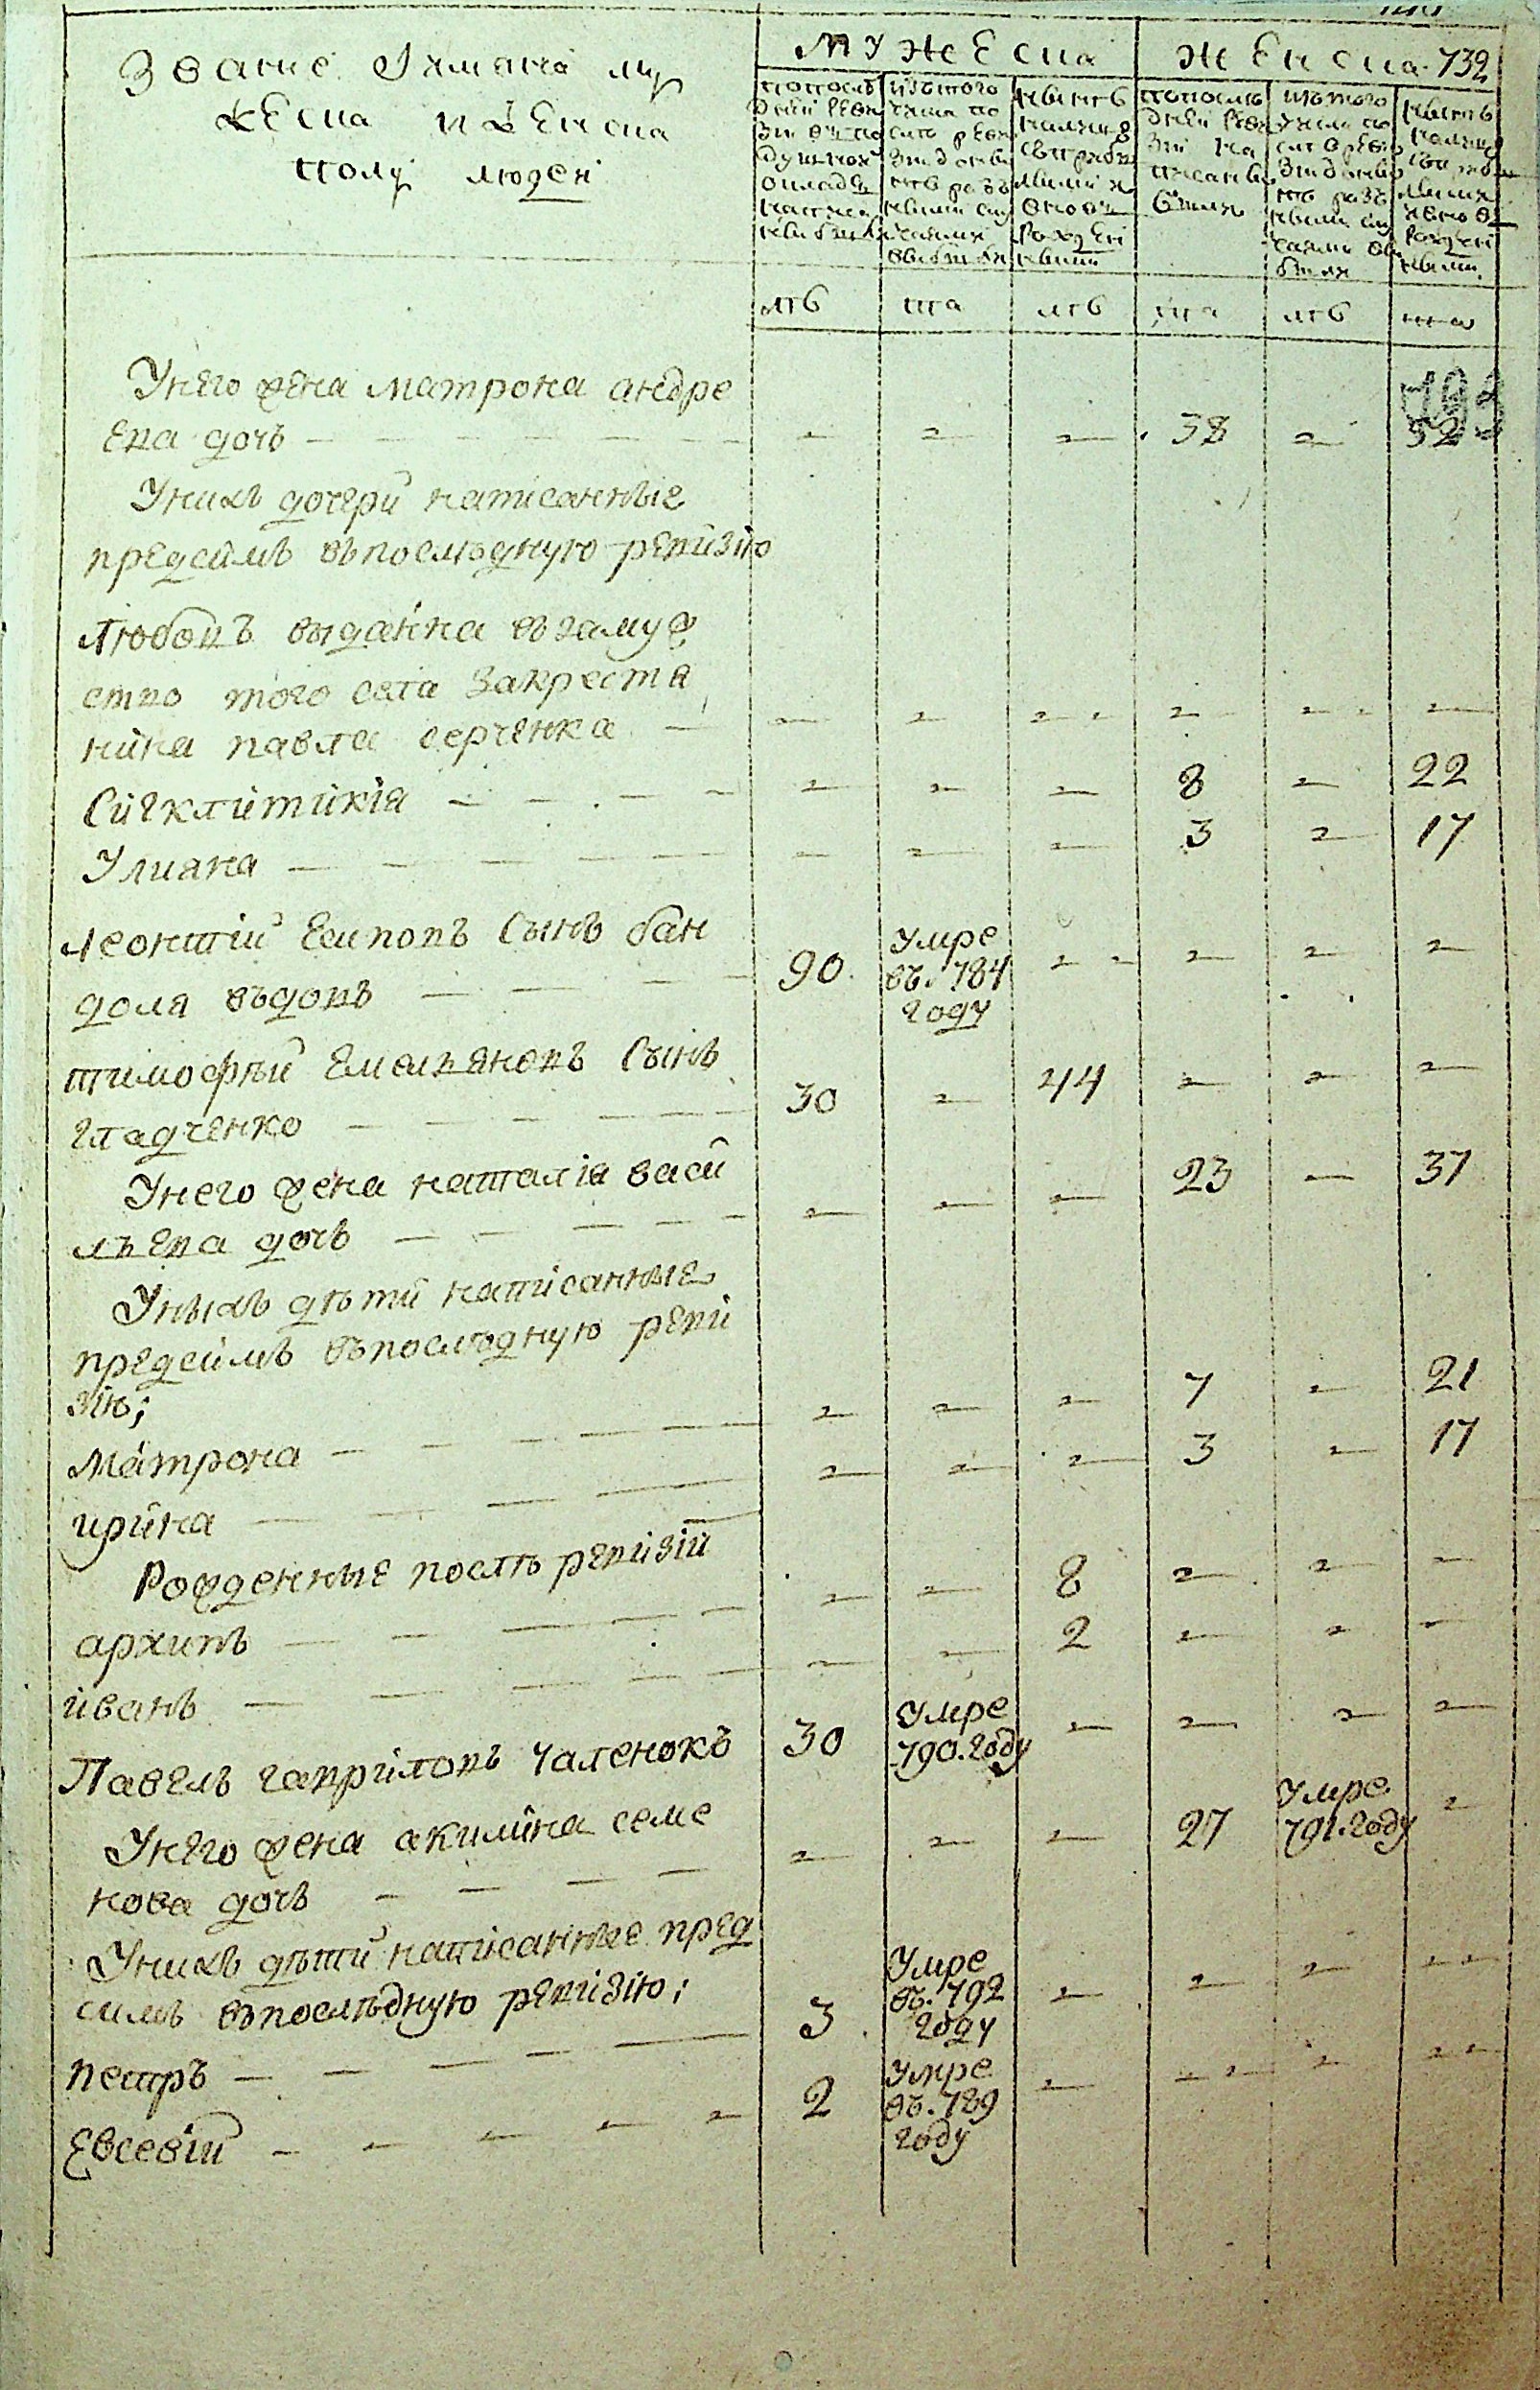 Званіе И имяна му
жеска и женска
полу людей
мужеска
женска
732
попослѣ
дней реви
зіи въ по
душной
окладъ
написа
ны были
изътого
числа по
слѣ реви
зіи разъ
ными слу
чаями
выбыли
нынѣ
налицо
съ прибы
лыми и
вновь
рожден
ными
попослѣ
дней реви
зіи на
писаны
были
изътого
числа по
слѣ реви
зіи разъ
ными слу
чаями вы
было
нынѣ
налицо
рожден
ными
лѣ та лѣ та лѣ та
193
Унего жена матрона андре
ева дочь 38 52
Унихъ дочери написанные
предсимъ въпослѣдную ревизію
Любовъ выданна въ замуж
ство того села Закрестя
нина павла серченка
Сигклитикія 8 22
Улиана 3 17
леонтій Есиповъ Сынъ бан
дола въдовъ 90 умре
въ. 784
году
тимофѣй Емельяновъ Сынъ
гладченко 30 44
Унего жена наталія васи
льева дочь 23 37
Унихъ дѣти написанные
предсимъ въпослѣдную реви
зію;
матрона 7 21
ирина 3 17
Рожденные послѣ ревизіи
архипъ 8
иванъ 2
Павелъ гавриловъ чаленокъ 30 умре
790. году
Унего жена акилина семе
нова дочь 27 умре
791. году
Унихъ дѣти написанные пред
симъ въпослѣдную ревизію;
петръ 3 Умре
въ. 792
году
Евсевій 2 умре
въ. 789
году